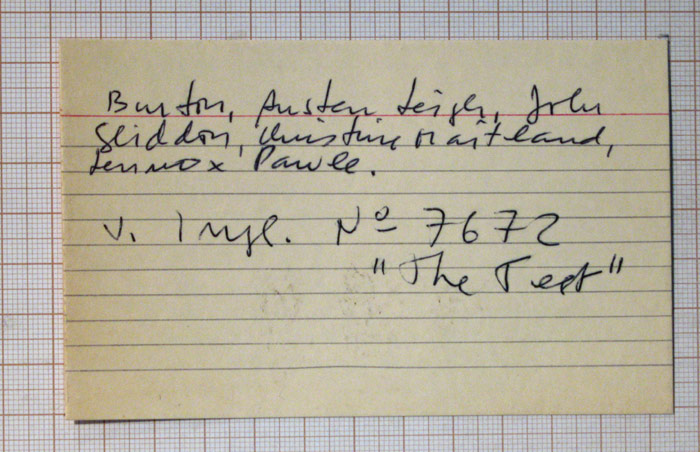 Burton, Austen Leigh, John
Gliddon, Christine Maitland,
Lennox Pawle.
v. Ingl. Nº 7672
"The Test"